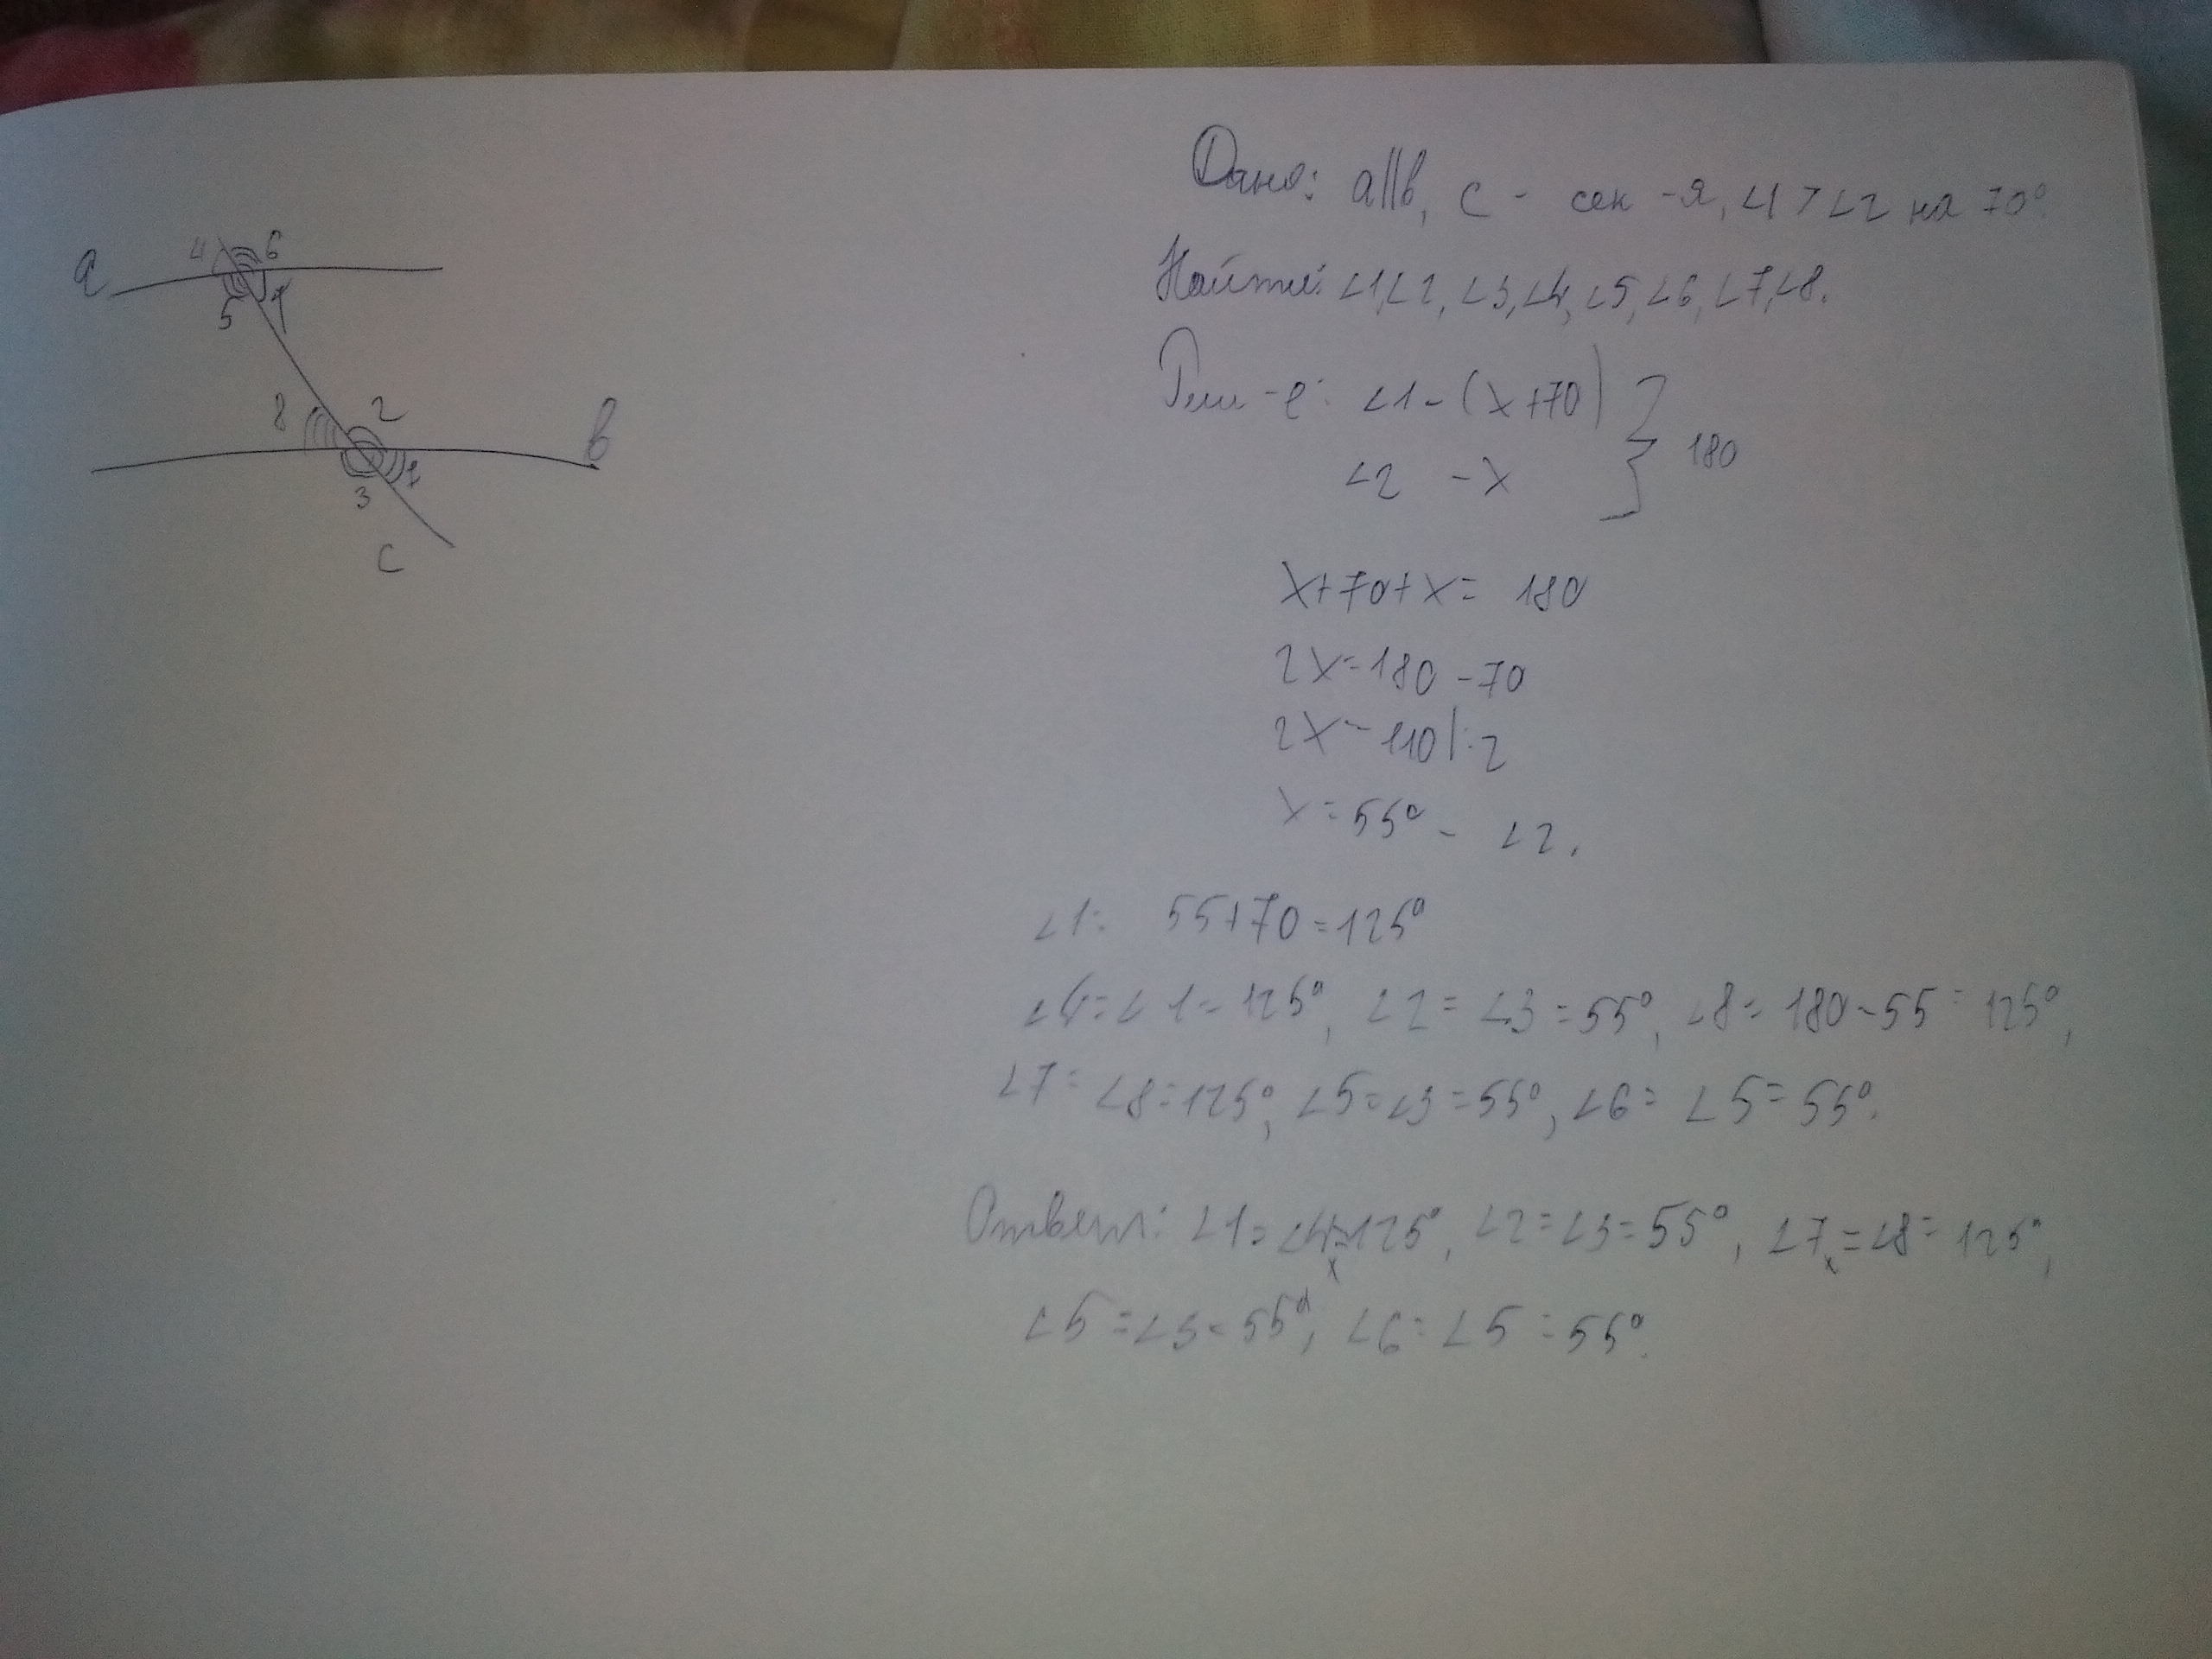 Дано: a||b, c - сек-я, ∠1 > ∠2 на 70°.
Найти: ∠1,∠2, ∠3,∠4, ∠5,∠6, ∠7,∠8.
Реш-е: ∠1 - (x+70) }
∠2 - x } 180
x+70+x= 180
2x=180-70
2x=110|:2
x=55° - ∠2.
∠1: 55+70=125°
∠4=∠1=125°, ∠2=∠3=55°, ∠8=180-55=125°,
∠7=∠8=125°, ∠5=∠3=55°, ∠6=∠5=55°.
Ответ: ∠1=∠4=125°, ∠2=∠3=55°, ∠7=∠8=125°,
x x
∠5=∠3=55°, ∠6=∠5=55°.
a
4 6
5 1
8 2
b
3 7
c